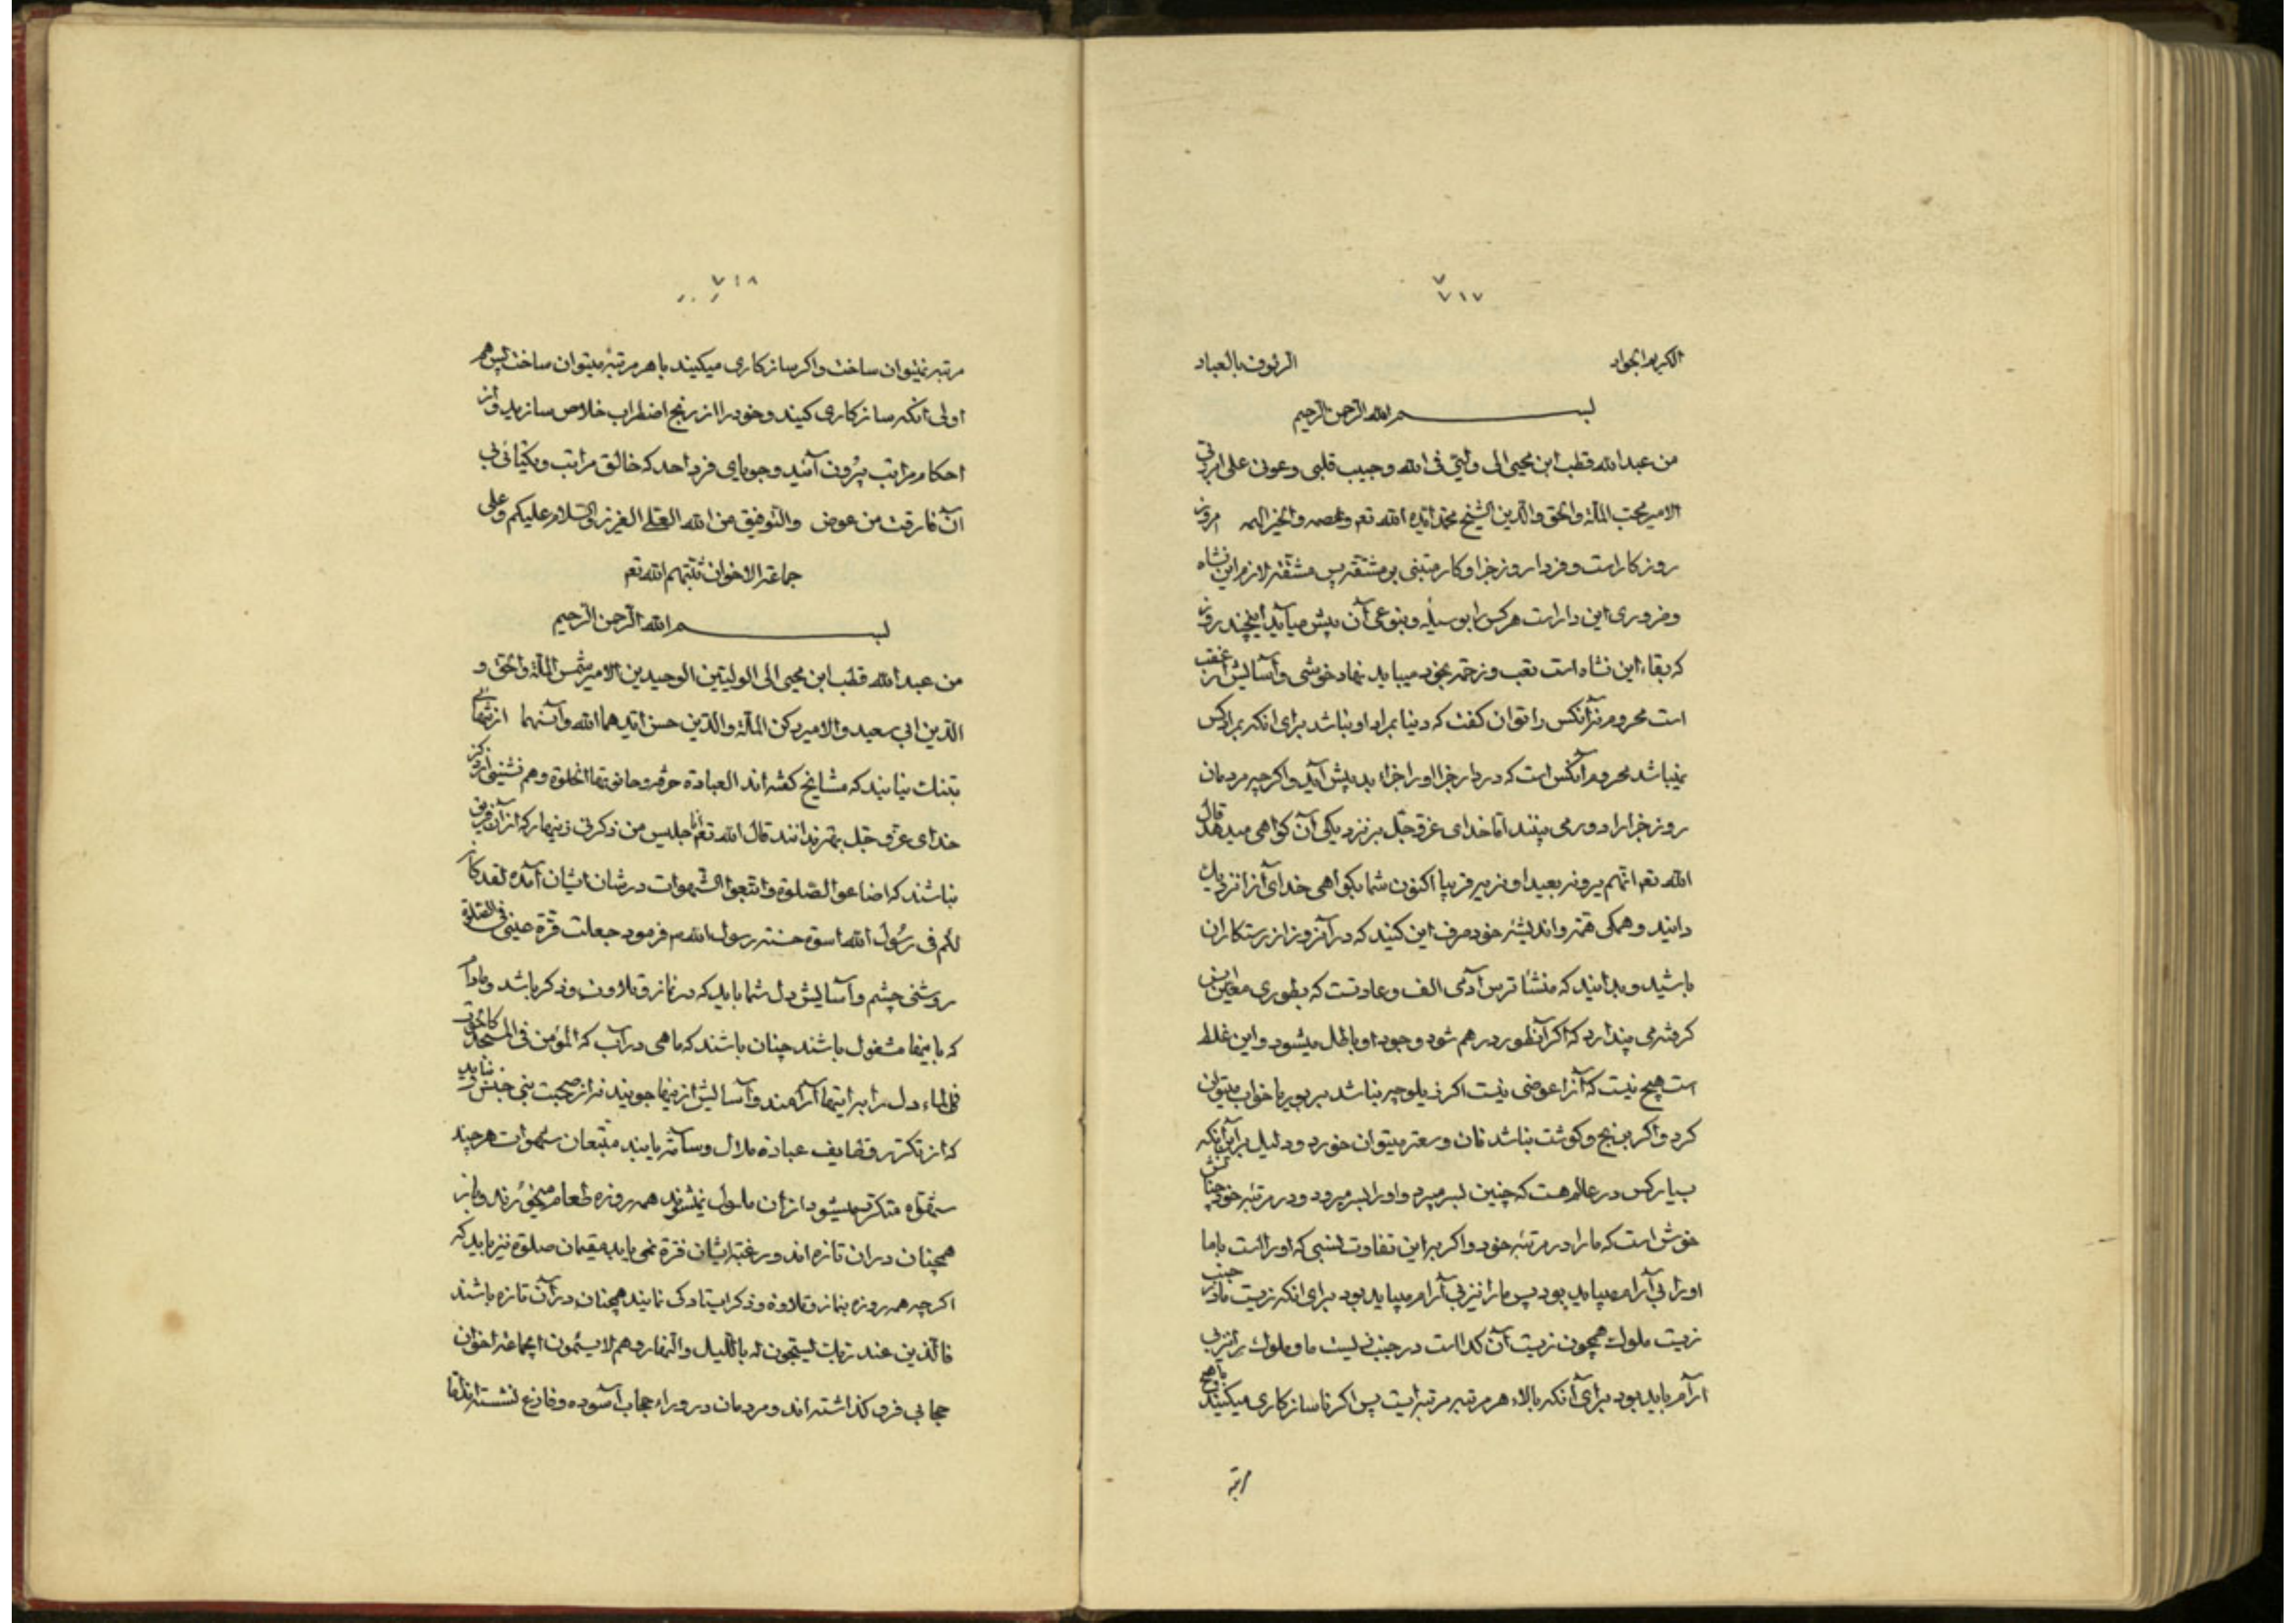 ۷۱۷
الکریم الجواد الرئوف بالعباد
بسم الله الرحمن الرحیم
من عبد الله قطب ابن محیی الی ولیّی فی الله و حبیب قلبی و عونی علی امر ربّی
الامیر محب الملّة والحق والدّین الشیخ محمد ایّده الله تعم وعصمه والخیر الهمه امروز
روز کار است و فردا روز جزا و کار مبتنی بر مشقّة پس مشقّة لازم این نشاه
و ضروری این دار است هرکس را بوسیلۀ و بنوعی آن پیش میآید اینچند روز
که بقاء این نشاه است تعب و زحمة بخود میباید نهاد خوشی و آسایش از عقب
است محروم نه آنکس را توان کفت که دنیا بمراد او نباشد برای انکه بمراد کس
نمیباشد محروم آنکس است که در دار جزا او را جزاء بد پیش آید و اکرچه مردمان
روز جزا را دور می بینند امّا خدای عزّ و جلّ بر نزدیکی آن کواهی میدهد قال
الله تعم انّهم یرونه بعیدا و نریه قریبا اکنون شما بکواهی خدای آنرا نزدیک
دانید و همکی همّة و اندیشۀ خود صرف این کنید که در آنروز از رستکاران
باشید و بدانید که منشأ ترس آدمی الف و عادتست که بطوری معیّن انس
کرفته می پندارد که اکر آنطور در هم شود وجود او باطل میشود و این غلط
است هیچ نیست که آنرا عوضی نیست اکر نهلوچه نباشد بر بوریا خواب میتوان
کرد و اکر برنج و کوشت نباشد نان و سعتر میتوان خورد و دلیل بر این آنکه
بسیار کس در عالم هست که چنین بسر میبرد و او را بسر میرود و در مرتبه خود چنان
خوش است که ما را در مرتبه خود و اکر بر این تفاوت نسبی که او راست با ما
او را بی آرام میباید بود پس ما را نیز بی آرام میباید بود برای انکه زیست ما در جنب
زیست ملوک همچون زیست آن کداست در جنب زیست ما و ملوک را نیز بی
ارآم باید بود برای آنکه بالاء هر مرتبه مرتبه ایست پس اکر ناسازکاری میکنید با هیچ
مرتبه
۷۱۸
مرتبه نمیتوان ساخت و اکر سازکاری میکنید با هر مرتبۀ میتوان ساخت پس هم
اولی انکه سازکاری کنید و خود را از رنج اضطراب خلاص سازید و از
احکام مراتب بیرون آئید و جویای فرد احد که خالق مراتب و یکتا
ان فارقت من عوض والتوفیق من الله العلی العزیز والسّلام علیکم و علی
جماعة الاخوان ثبّتهم الله تعم
بسم الله الرحمن الرحیم
من عبد الله قطب ابن محیی الی الولیّین الوحیدین الامیر شمس الملّة والحق و
الدّین ابی سعید والامیر رکن الملّة والدّین حسن ایّدهما الله وآنسهما از تنهائی
بتنک نیایند که مشایخ کفته اند العبادة حرفة وحانوتها الخلوة و هم نشینی ذکر
خدای عزّ و جلّ بهتر دانند قال الله تعم انا جلیس من ذکرنی زنهار که از آن فریق
نباشند که اضاعوا الصّلوة واتّبعوا الشّهوات در شان ایشان آمده لقد کان
لکم فی رسول الله اسوة حسنة رسول الله م فرمود جعلت قرّة عینی فی الصّلوة
روشنی چشم و آسایش دل شما باید که در نماز و تلاوت و ذکر باشد و مادام
که باینها مشغول باشند چنان باشند که ماهی در آب که المؤمن فی المسجد کالحوت
فی الماء دل را برای اینها آرآمند و آسایش از اینها جویند نه از صحبت بنی جنس و نباید
که از تکرّر وظایف عبادة ملال و سآمة یابند متّبعان شهوات هرچند
متکرّر میشود از ان ملول نمیشوند همه روزه طعام میخورند و باز
همچنان در ان تازه اند و رغبة ایشان فترة نمی یابد مقیمان صلوة نیز باید که
اکرچه همه روزه بنماز و تلاوة و ذکر ایستادکی نمایند همچنان در آن تازه باشند
فالّذین عند ربّک یسبّحون له باللّیل والنّهار و هم لا یسئمون ایجماعة اخوان
حجابی فرو کذاشته اند و مردمان در وراء حجاب آسوده و فارغ نشسته اند